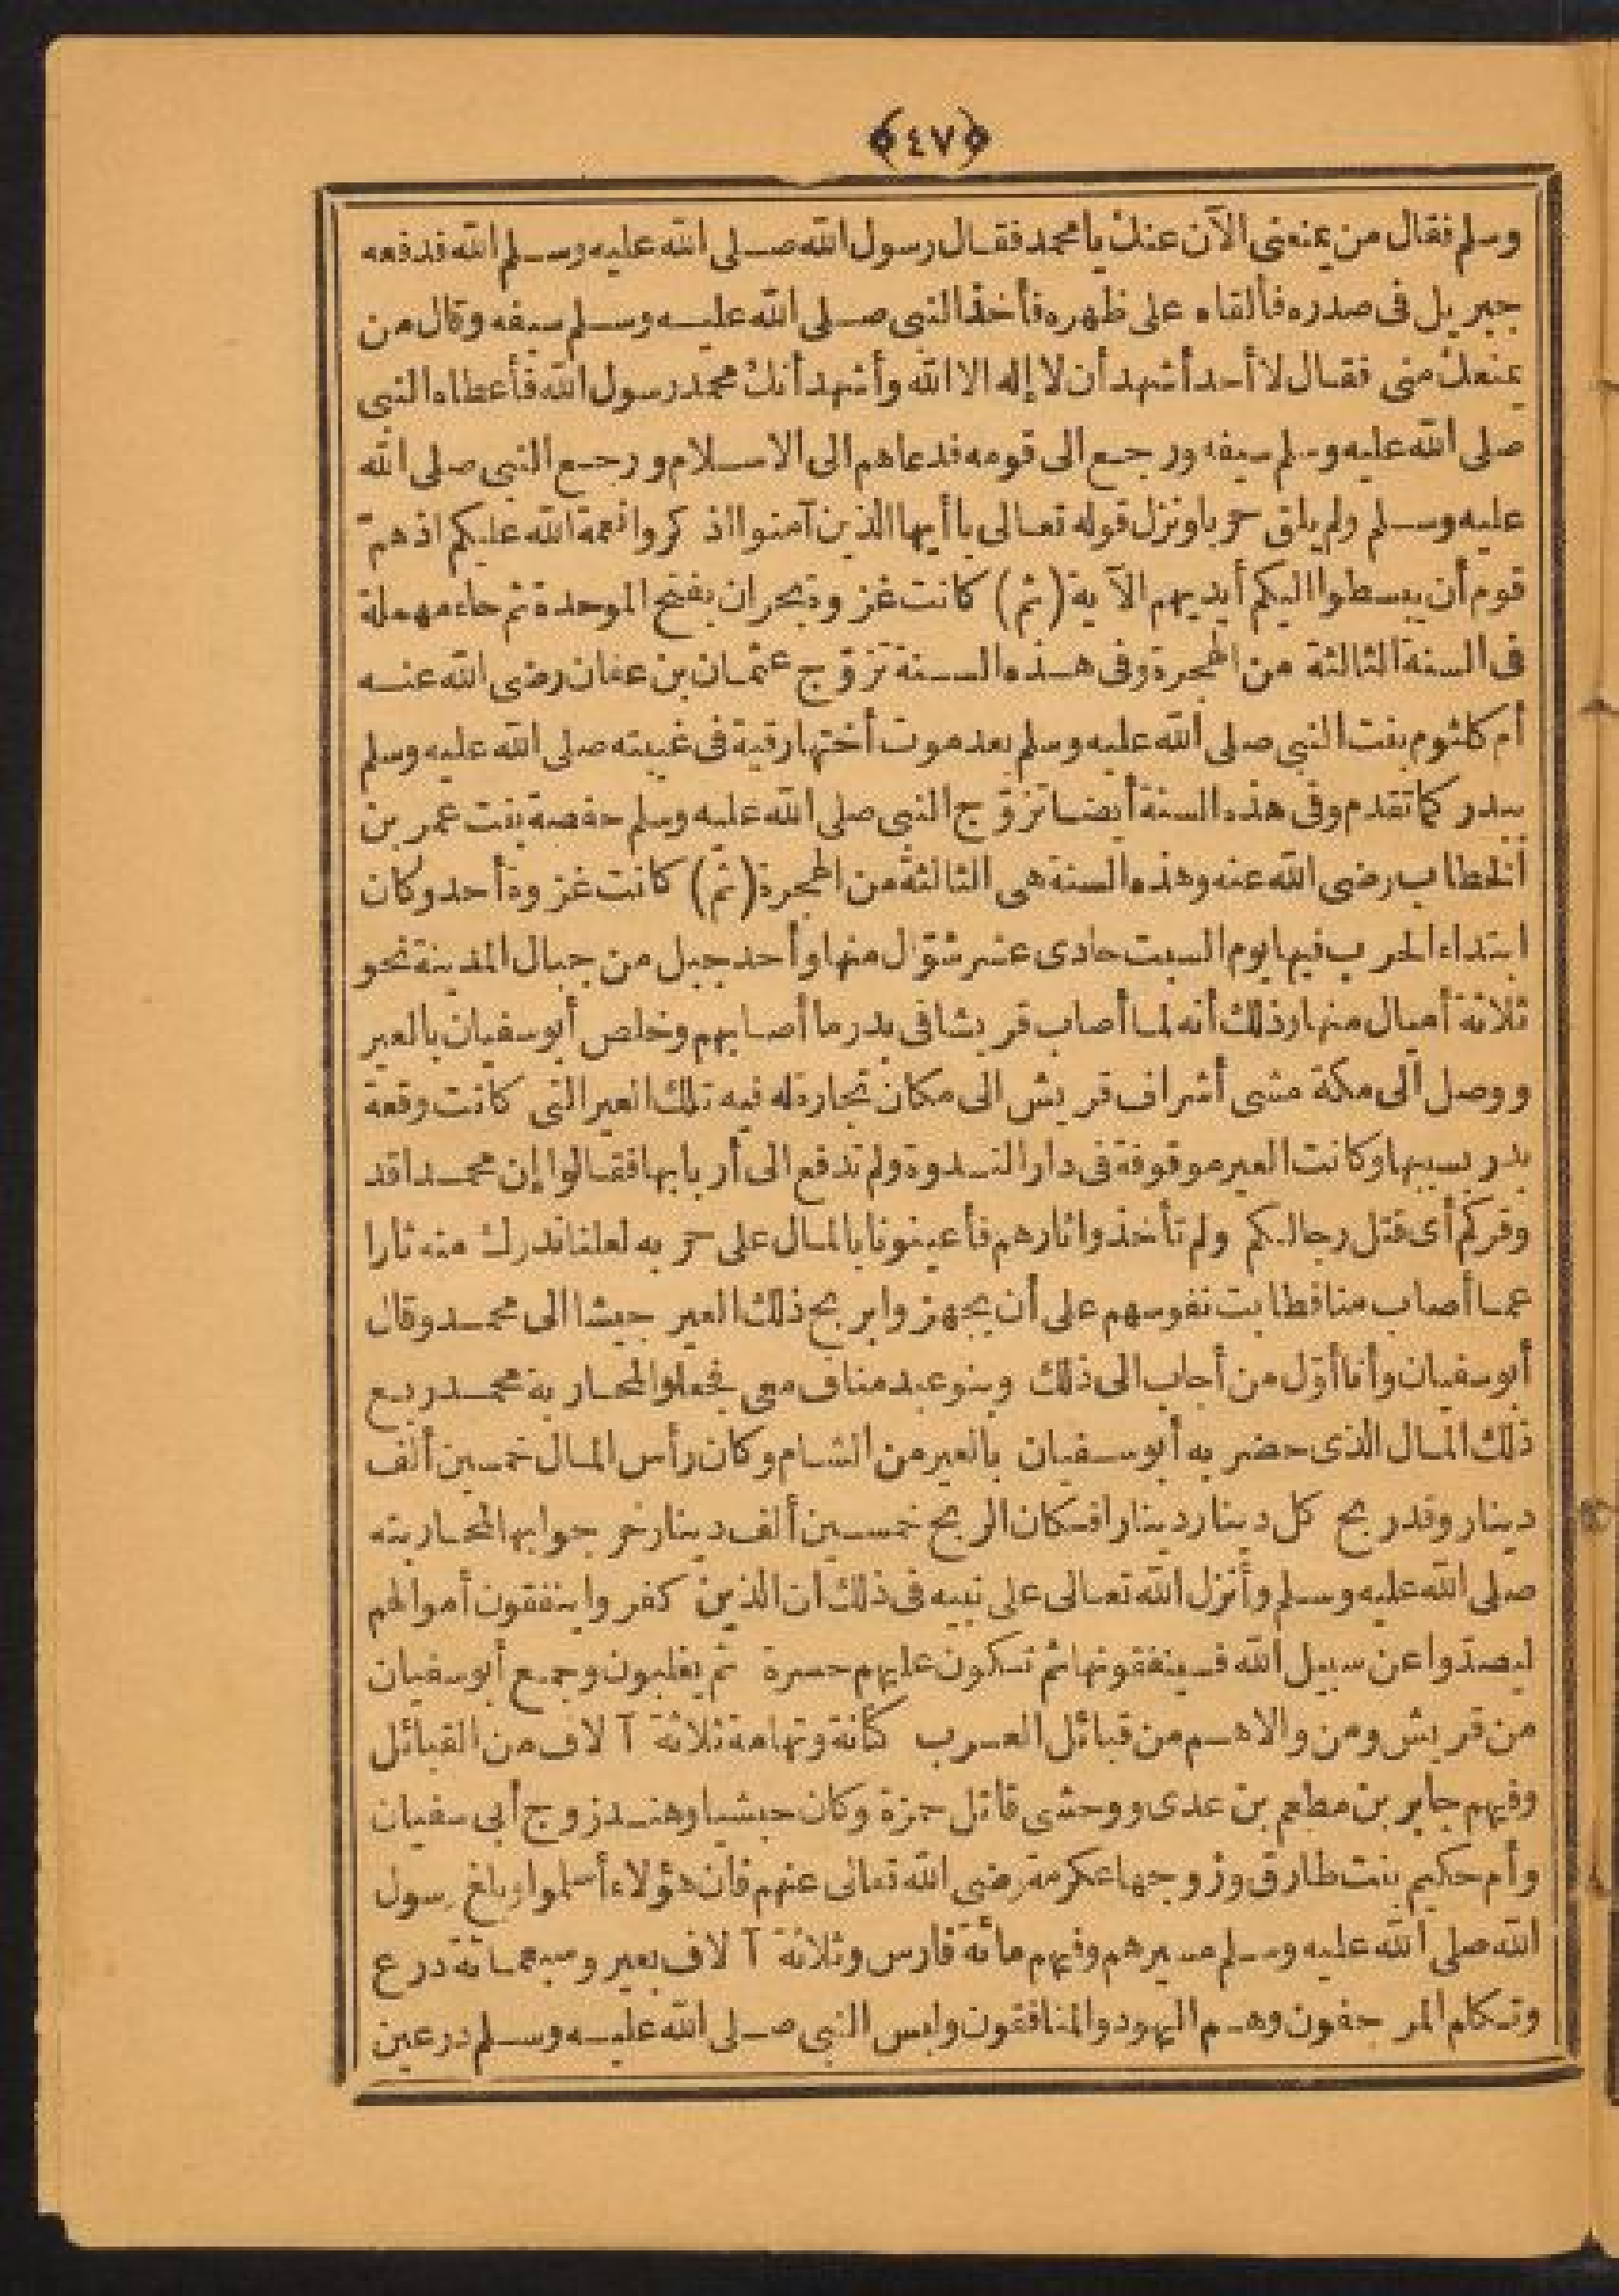 ﴿٤٧﴾
وسلم فقال من يمنعنى الآن عنك يا محمد فقال رسول الله صلى الله عليه وسلم الله فدفعه
جبريل فى صدره فألقاه على ظهره فأخذ النبى صلى الله عليه وسلم سيفه وقال من
يمنعك منى فقال لا أحد أشهد أن لا إله الا الله وأشهد أنك محمد رسول الله فأعطاه النبى
صلى الله عليه وسلم سيفه ورجع الى قومه فدعاهم الى الاسلام ورجع النبى صلى الله
عليه وسلم ولم يلق حربا ونزل قوله تعالى يا أيها الذين آمنوا اذكروا نعمة الله عليكم اذ همّ
قوم أن يبسطوا اليكم أيديهم الآية (ثم) كانت غزوة بحران بفتح الموحدة ثم حاء مهملة
فى السنة الثالثة من الهجرة وفى هذه السنة تزوّج عثمان بن عفان رضى الله عنه
أم كلثوم بنت النبى صلى الله عليه وسلم بعد موت أختها رقية فى غيبته صلى الله عليه وسلم
ببدر كما تقدم وفى هذه السنة أيضا تزوّج النبى صلى الله عليه وسلم حفصة بنت عمر بن
الخطاب رضى الله عنه وهذه السنة هى الثالثة من الهجرة (ثم) كانت غزوة أحد وكان
ابتداء الحرب فيها يوم السبت حادى عشر شوّال منها وأحد جبل من جبال المدينة نحو
ثلاثة أميال منها وذلك أنه لما أصاب قريشا فى بدر ما أصابهم وخلص أبو سفيان بالعير
ووصل الى مكة مشى أشراف قريش الى مكان تجارة له فيه تلك العير التى كانت وقعة
بدر بسببها وكانت العير موقوفة فى دار الندوة ولم تدفع الى أربابها فقالوا إن محمدا قد
وقركم أى قتل رجالكم ولم تأخذوا ثارهم فأعينونا بالمال على حربه لعلنا ندرك منه ثارا
عما أصاب منا فطابت نفوسهم على أن يجهزوا بربح ذلك العير جيشا الى محمد وقال
أبو سفيان وأنا أوّل من أجاب الى ذلك وبنو عبد مناف معى فجعلوا لمحاربة محمد ربع
ذلك المال الذى حضر به أبو سفيان بالعير من الشام وكان رأس المال خمسين ألف
دينار وقد ربح كل دينار دينارا فكان الربح خمسين ألف دينار خرجوا بها لمحاربته
صلى الله عليه وسلم وأنزل الله تعالى على نبيه فى ذلك ان الذين كفروا ينفقون أموالهم
ليصدّوا عن سبيل الله فسينفقونها ثم تكون عليهم حسرة ثم يغلبون وجمع أبو سفيان
من قريش ومن والاهم من قبائل العرب كنانة وتهامة ثلاثة آلاف من القبائل
وفيهم جابر بن مطعم بن عدى ووحشى قاتل حمزة وكان حبشيا وهند زوج أبى سفيان
وأم حكيم بنت طارق وزوجها عكرمة رضى الله تعالى عنهم فان هؤلاء أسلموا وبلغ رسول
الله صلى الله عليه وسلم مسيرهم وفيهم مائة فارس وثلاثة آلاف بعير وسبعمائة درع
وتكلم المرجفون وهم اليهود والمنافقون ولبس النبى صلى الله عليه وسلم درعين